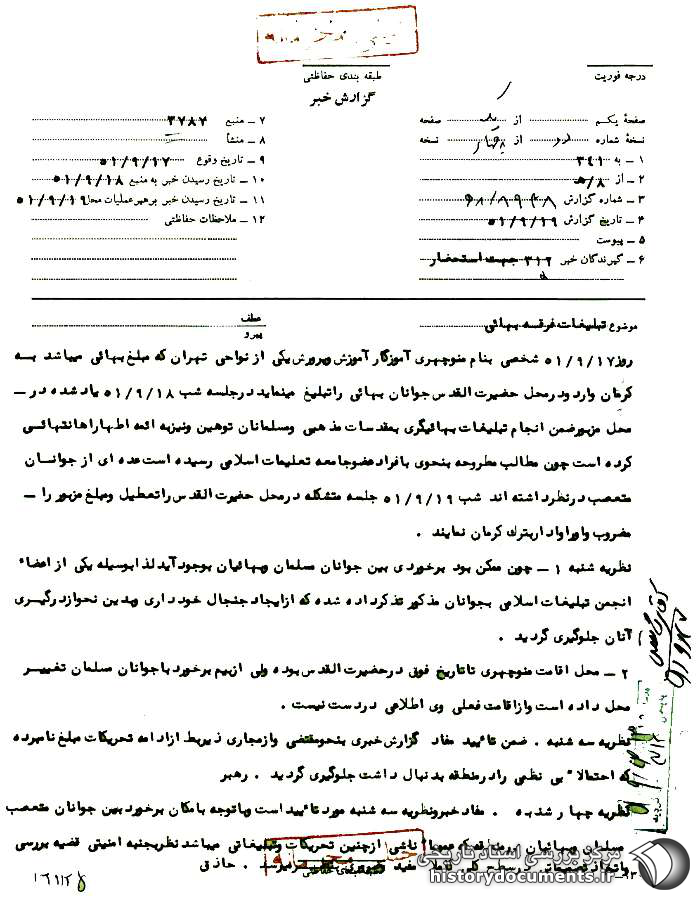 درجه فوریت
طبقه بندی حفاظتی
گزارش خبر
صفحهٔ یکم از صفحه
نسخهٔ شماره از چهار نسخه
۱ ـ به ۳۴۱
۲ ـ از ۸/ه‍
۳ ـ شماره گزارش
۴ ـ تاریخ گزارش ۵۱/۹/۱۹
۵ ـ پیوست
۶ ـ گیرندگان خبر ۳۱۲ جهت استحضار
۷ ـ منبع ۳۷۸۷
۸ ـ منشأ
۹ ـ تاریخ وقوع ۵۱/۹/۱۷
۱۰ ـ تاریخ رسیدن خبر به منبع ۵۱/۹/۱۸
۱۱ ـ تاریخ رسیدن خبر برهبر عملیات محل ۵۱/۹/۱۹
۱۲ ـ ملاحظات حفاظتی
موضوع تبلیغات فرقه بهائی
عطف
پیرو
روز ۵۱/۹/۱۷ شخصی بنام منوچهری آموزگار آموزش وپرورش یکی از نواحی تهران که مبلغ بهائی میباشد به
کرمان وارد ودرمحل حضیرت القدس جوانان بهائی راتبلیغ مینماید درجلسه شب ۵۱/۹/۱۸ یاد شده در ـ
محل مزبورضمن انجام تبلیغات بهائیگری بمقدسات مذهبی ومسلمانان توهین ونیزبه ائمه اطهاراهانتهائی
کرده است چون مطالب مطروحه بنحوی بافراد عضوجامعه تعلیمات اسلامی رسیده است عده ای از جوانسان
متعصب درنظرداشته اند شب ۵۱/۹/۱۹ جلسه متشکله درمحل حضیرت القدس راتعطیل ومبلغ مزبور را ـ
مضروب واورا وادار بترک کرمان نمایند .
نظریه شنبه ۱ ـ چون ممکن بود برخوردی بین جوانان مسلمان وبهائیان بوجود آید لذا بوسیله یکی از اعضاء
انجمن تبلیغات اسلامی بجوانان مذکور تذکر داده شده که ازایجاد جنجال خود داری وبدین نحوازدرگیری
آنان جلوگیری گردید .
۲ ـ محل اقامت منوچهری تاتاریخ فوق درحضیرت القدس بوده ولی ازبیم برخورد باجوانان مسلمان تغییر
محل داده است وازاقامت فعلی وی اطلاعی دردست نیست .
نظریه سه شنبه . ضمن تائیید مفاد گزارش خبری بنحومقتضی وازمجاری ذیربط ازادامه تحریکات مبلغ نامبرده
که احتمالا بی نظمی رادرمنطقه بدنبال داشت جلوگیری گردید . رهبر
نظریه چهارشنبه . مفاد خبرونظریه سه شنبه مورد تائیید است وباتوجه بامکان برخورد بین جوانان متعصب
مسلمان وبهائیان ناشی ازچنین تحریکات وتبلیغاتی میباشد نظربجنبه امنیتی قضیه بررسی
مفید . حاذق
مرکز بررسی اسناد تاریخی
historydocuments.ir